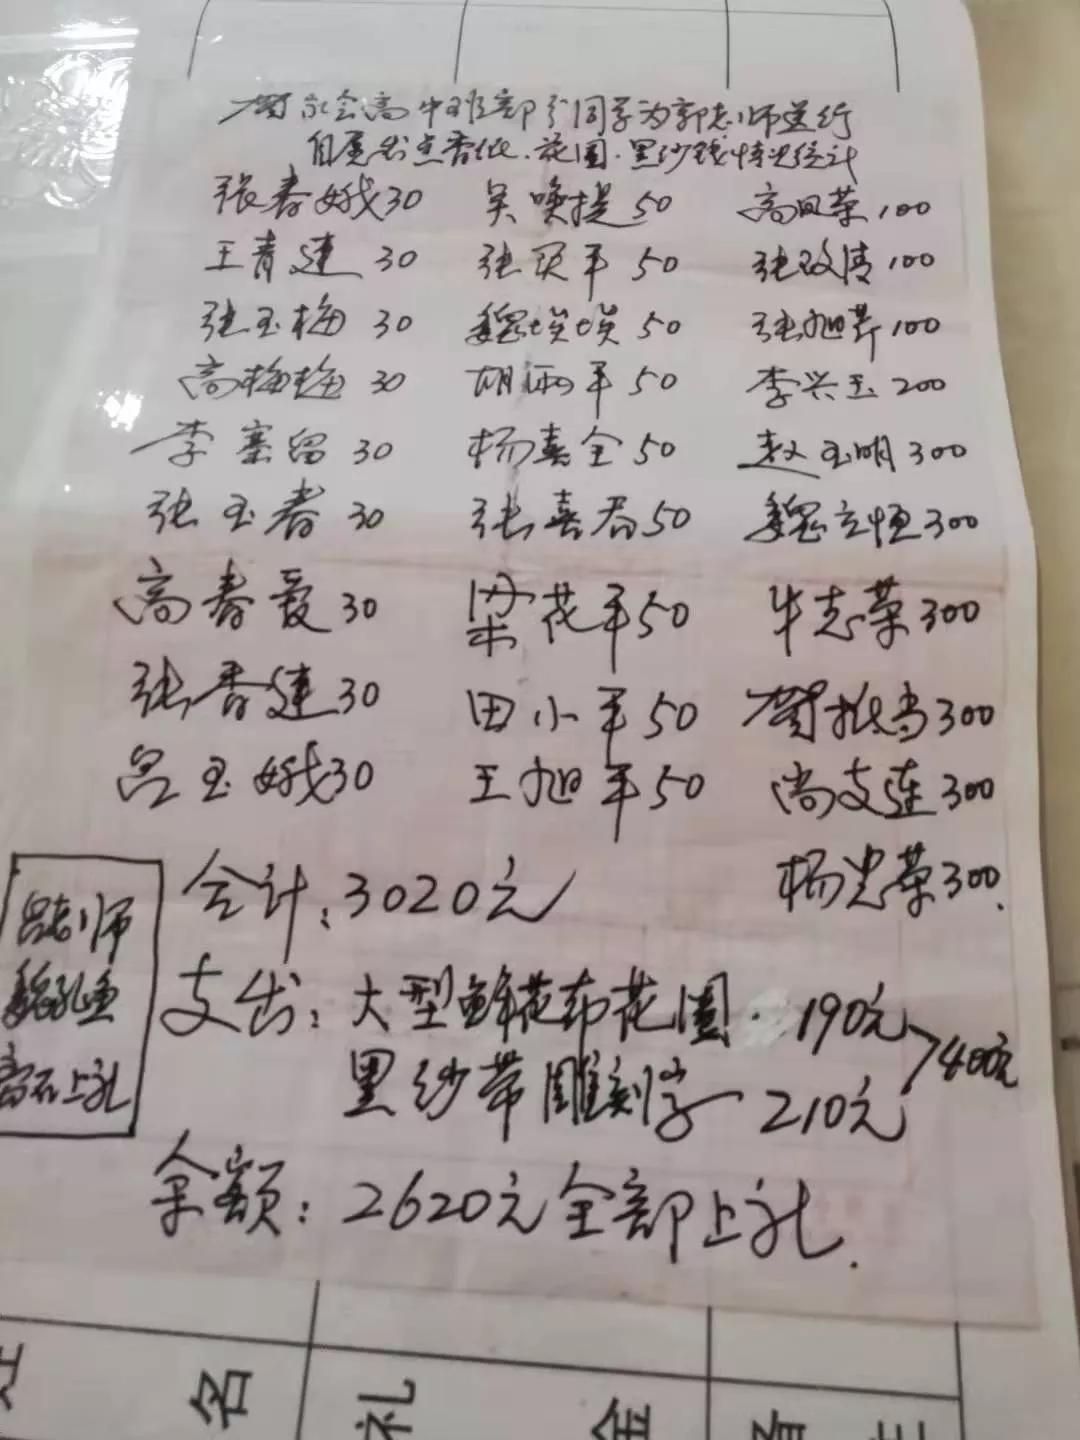 贺家会高中班部分同学为郭老师送行
自愿出点香纸、花圈、黑纱钱情况统计
张春娥30 吴唤提50 高四荣100
王青连30 张买平50 张改清100
张玉梅30 魏埃埃50 张旭芹100
高梅梅30 胡两平50 李兴玉200
李塞留30 杨喜全50 赵玉明300
张玉春30 张喜看50 魏立恒300
高春爱30 梁花平50 牛志荣300
张香连30 田小平50 贺拖当300
吕玉娥30 王旭平50 尚支连300
杨忠荣300.
合计:3020元
支出:大型鲜花布花圈 190元
黑纱带雕刻字 210元
400元
余额:2620元全部上礼.
吕老师
魏孔鱼
高在上礼
姓 名 礼 金 备 注